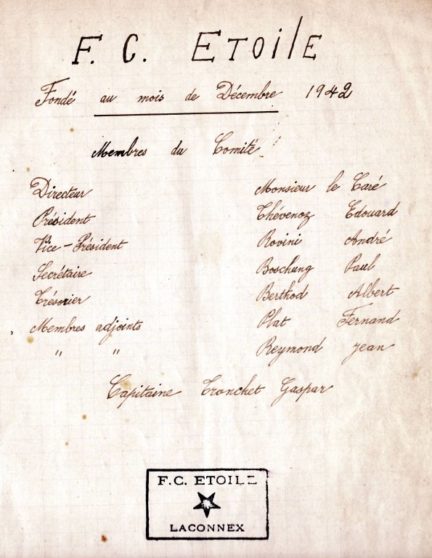 F. C. ETOILE
Fondé au mois de Décembre 1942
Membres du Comité
Directeur Monsieur le Curé
Président Thévenoz Edouard
Vice-Président Rosini André
Secrétaire Boschung Paul
Trésorier Berthod Albert
Membres adjoints Plat Fernand
" " Reymond Jean
Capitaine Tronchet Gaspar
F.C. ETOILE
LACONNEX